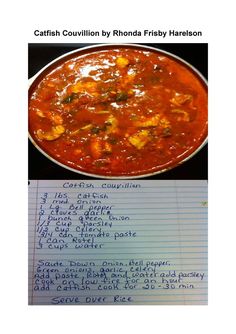 Catfish Couvillion by Rhonda Frisby Harelson
Catfish Couvillion
3 lbs. catfish
3 med. onion
1 Lg. Bell pepper
2 cloves garlic
1 bunch green onion
1/2 cup parsley
1/2 cup celery
3/4 can tomato paste
1 can Rotel
3 cups water
Saute Down onion, Bell pepper,
Green onions, garlic, celery
add paste, Rotel and water add parsley
Cook on low fire for an hour
add catfish cook for 20-30 min
Serve Over Rice